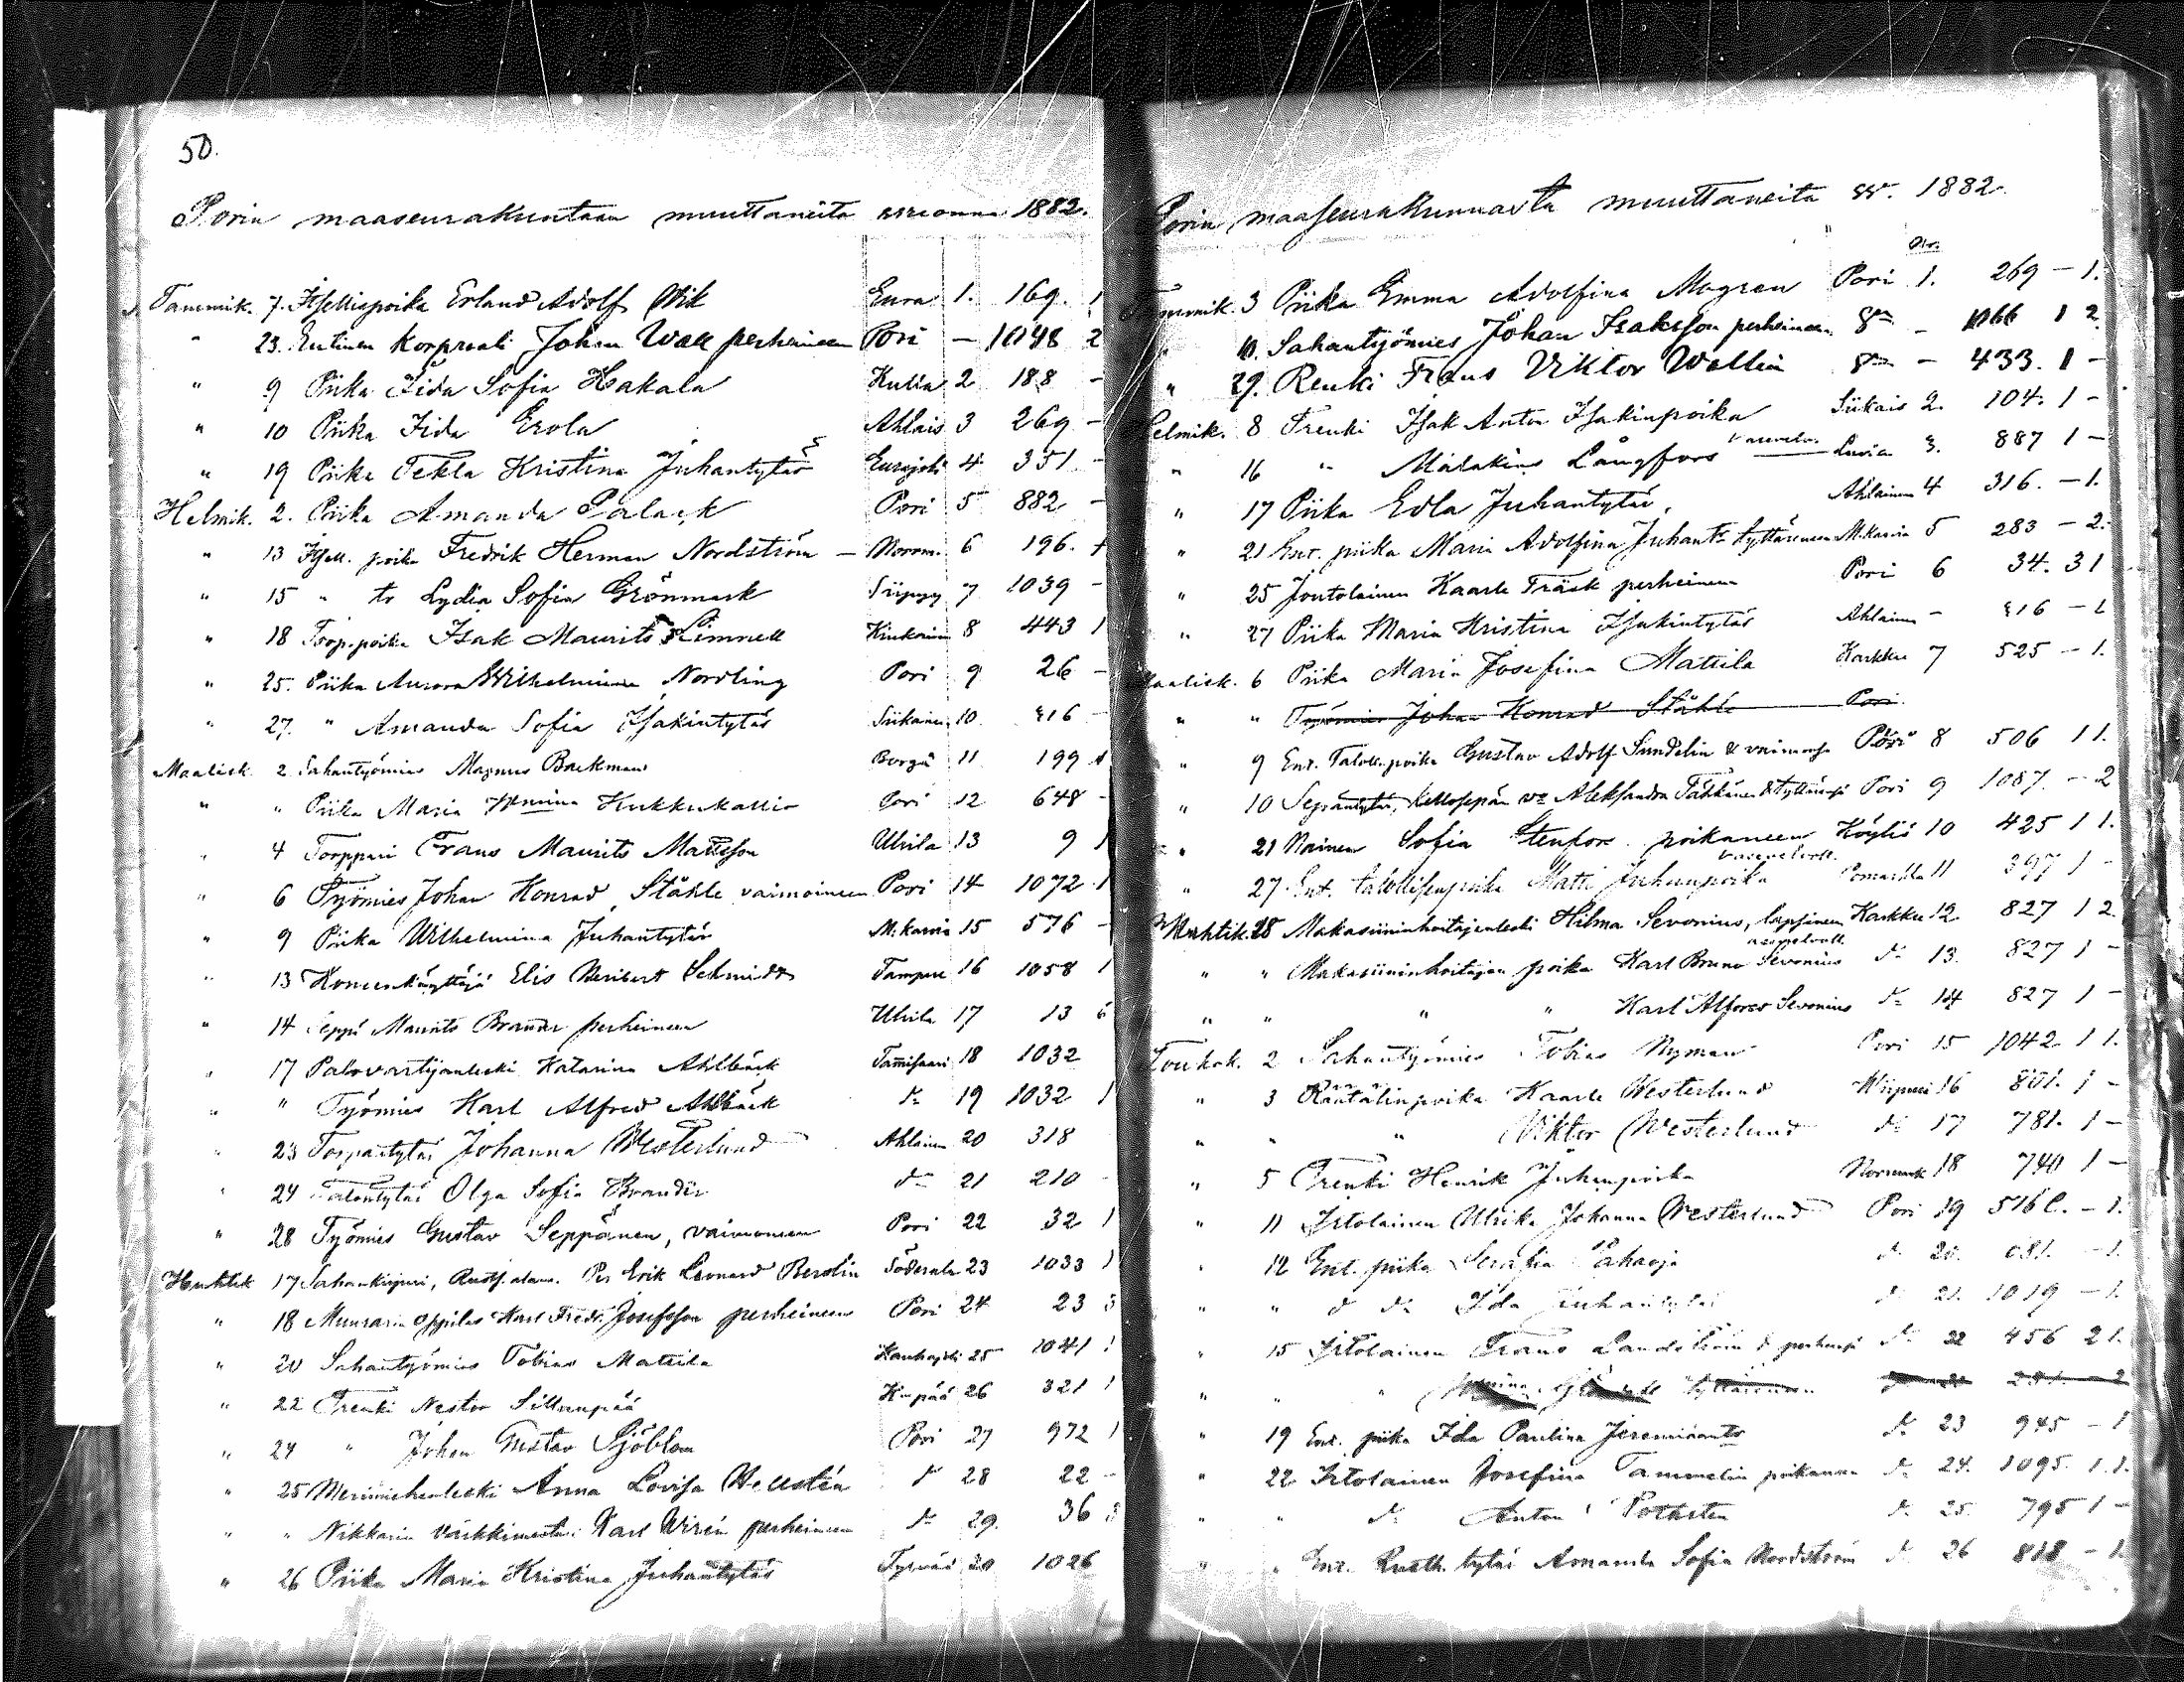 50.
Porin maaseurakuntaan muuttaneita vuonna 1882.
Tammik. 7. Itsellispoika Erland Adolf Vik Eura 1. 169. 1
" 23. Entinen Korpraali Johan Wall perheineen Pori — 1048 2
" 9 Piika Iida Sofia Hakala 2 188 -
" 10 Piika Iida Erola Ahlais 3 269 -
" 19 Piika Tekla Kristina Juhantytär Eurajoki 4 351 -
Helmik. 2. Piika Amanda Palack Pori 5 882 -
" 13 Itsell. poika Fredrik Herman Nordström — Norrm. 6 196.
" 15 " tr Lydia Sofia Grönmark Siipyy 7 1039 -
" 18 Torp. poika Isak Maurits Limnell Kiukainen 8 443 1
" 25. Piika Aurora Wilhelmina Nordling Pori 9 26 -
" 27. " Amanda Sofia Isakintytär Siikainen 10 416 -
Maalisk. 2 Sahantyömies Magnus Backman Borgå 11 199 1
" " Piika Maria Kukkukallio Pori 12 648 -
" 4 Torppari Frans Maurits Mattsson Ulvila 13 9 1
" 6 Työmies Johan Konrad Ståhle vaimoineen Pori 14 1072 1
" 9 Piika Wilhelmina Juhantytär M:karvia 15 576 -
" 13 Koneenkäyttäjä Elis Heribert Schmidt Tampere 16 1058 1
" 14 Seppä Maurits Brander perheineen Ulvila 17 13 6
" 17 Palovartijanleski Katarina Ahlbäck Tammisaari 18 1032
" " Työmies Karl Alfred Ahlbäck d:o 19 1032 1
" 23 Torpantytär Johanna Westerlund Ahlainen 20 318
" 24 Talontytär Olga Sofia Brander d:o 21 210 -
" 28 Työmies Gustav Seppänen, vaimoneen Pori 22 32 1
Huhtik 17 Sahankirjuri, Per Erik Leonard Berolin Söderala 23 1033 1
" 18 Muurarin oppilas Karl Fredr. Josefsson perheineen Pori 24 23 3
" 20 Sahantyömies Tobias Mattila Kauhajoki 25 1041 1
" 22 Trenki Nestor Sillanpää 26 321 1
" 24 " Johan Gustav Sjöblom Pori 27 972 1
" 25 Merimiehenleski Anna Lovisa Hellstén d:o 28 22 -
" " Nikkarin Karl Wirén perheineen d:o 29. 36 3
" 26 Piika Maria Kristina Juhantytär Tyrvää 30 1026
Porin maaseurakunnasta muuttaneita vv. 1882.
N:o.
Tammik. 3 Piika Emma Adolfina Mogren Pori 1. 269 — 1.
" 10. Sahantyömies Johan Isaksson perheineen d:o - 1066 1 2.
" 29. Renki Frans Viktor Wallin d:o - 433. 1 -
Helmik. 8 Trenki Isak Anton Isakinpoika Siikais 2. 104. 1 -
" 16 " Malakias Långfors Luvia 3. 887 1 -
" 17 Piika Edla Juhantytär. Ahlainen 4 316. - 1.
" 21 Ent. piika Maria Adolfina Juhantr tyttärineen M:karvia 5 283 - 2.
" 25 Joutolainen Kaarle Träsk perheineen Pori 6 34. 3 1
" 27 Piika Maria Kristina Isakintytär Ahlainen - 416 - 1
Maalisk. 6 Piika Maria Josefina Mattila Karkku 7 525 - 1.
" " Työmies Johan Konrad Ståhle Pori.
" 9 Ent. Taloll. poika Gustav Adolf Sundelin & vaimonsa Pori 8 506 1 1.
" 10 Sepäntytär, Kellosepän v:o Aleksandra Tähkänen & tyttärensä Pori 9 1087. - 2
" 21 Nainen Sofia Stenfors poikaneen Köyliö 10 425 1 1.
" 27. Ent. talollisenpoika Matti Juhanpoika Pomarkku 11 397 1 -
Huhtik. 28 Makasiininhoitajanleski Hilma Sevonius, lapsineen Karkku 12 827 1 2.
" " Makasiininhoitajan poika Karl Bruno Sevonius d:o 13. 827 1 -
" " " " Karl Alfred Sevonius d:o 14 827 1 -
Toukok. 2 Sahantyömies Tobias Nyman Pori 15 1042. 1 1.
" 3 Räätälinpoika Kaarle Westerlund Wiipuri 16 801. 1 -
" " " Viktor Westerlund d:o 17 781. 1 -
" 5 Trenki Henrik Juhanpoika Normark 18 740 1 -
" 11 Irtolainen Ulrika Johanna Westerlund Pori 19 516 C. - 1.
" 12 Ent. piika Serafia Pahaoja d:o 20. 681. - 1.
" " d:o d:o Ida Juhantytär d:o 21. 1019 - 1.
" 15 Irtolainen Frans Landström & perheensä d:o 22 456 2 1.
" " " tyttärineen
" 19 Ent. piika Ida Paulina Jeremiaantr d:o 23 945 - 1
" 22 Irtolainen Josefina Tammelin poikaneen d:o 24. 1095. 1.1.
" " d:o Anton d:o 25. 795 1 -
" " Ent. Rusth. tytär Amanda Sofia Nordström d:o 26 818 - 1.